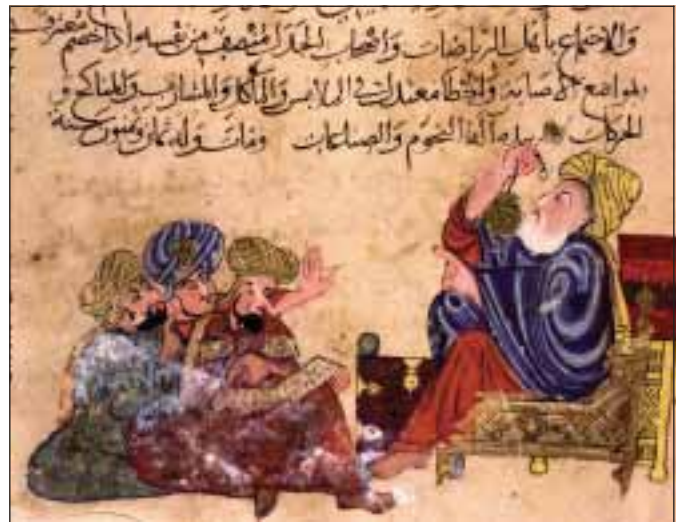 والاجتماع باهل الرياضات واصحاب الجدل منصف من نفسه اذا خصم معترف
بمواضع الاصابة والخطا معتدل في الملابس والماكل والمشارب والمناكح و
الحركات بيده آلة النجوم والصناعات ومات وله ثمان وستون سنة